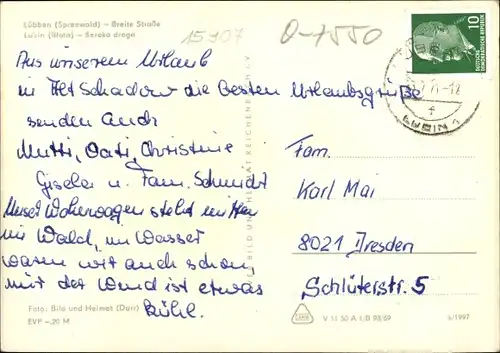 Lübben (Spreewald) — Breite Straße
Lubin (Błota) — Šeroka droga
15907
O-7550
10
DEUTSCHE DEMOKRATISCHE REPUBLIK
LUBIN 1
Aus unserem Urlaub
in Alt Schadow die besten Urlaubsgrüße
senden Euch
Mutti, Vati, Christine
Gisela u. Fam. Schmidt
Unser Wohnwagen steht mitten
im Wald, im Wasser
waren wir auch schon
nur der Wind ist etwas
kühl.
Fam.
Karl Mai
8021 Dresden
Schlüterstr. 5
BILD UND HEIMAT REICHENBACH I. V.
Foto: Bild und Heimat (Darr)
EVP —,20 M
V 11 50 A 1/B 98/69
5/1997